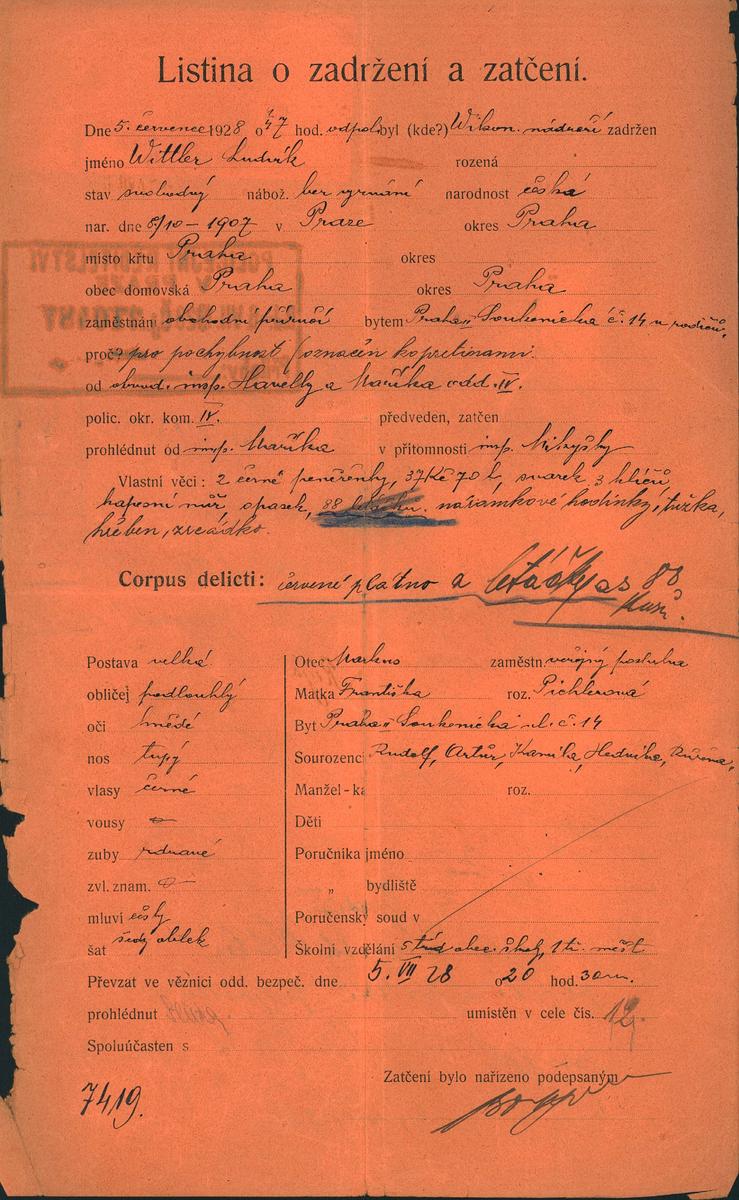 Listina o zadržení a zatčení.
Dne 5. července 1928 o 1/4 7 hod. odpol. byl (kde?) Wilson. nádraží zadržen
jméno Wittler Ludvík rozená
stav svobodný nábož. bez vyznání narodnost česká
nar. dne 8/10 – 1907 v Praze okres Praha
místo křtu Praha okres
obec domovská Praha okres Praha
zaměstnání obchodní příručí bytem Praha II Soukenická č. 14 u rodičů.
proč? pro pochybnost
od obvod. insp. Havelky a Maříka odd. IV.
polic. okr. kom. IV. předveden, zatčen
prohlédnut od insp. Maříka v přítomnosti insp.
Vlastní věci: 2 černé peněženky, 37 Kč 70 h, svazek 3 klíčů,
kapesní nůž, opasek, 88 letáků. náramkové hodinky, tužka,
hřeben, zrcádko.
Corpus delicti: červené plátno a letáčky as 88
kusů.
Postava velká
obličej podlouhlý
oči hnědé
nos tupý
vlasy černé
vousy
zuby zdravé
zvl. znam.
mluví česky
šat šedý oblek
Otec zaměstn. veřejný posluha
Matka Františka roz. Pichlerová
Byt Praha II Soukenická ul. č. 14
Sourozenci Rudolf, Artur, Kamila, Hedvika, Růžena,
Manžel-ka roz.
Děti
Poručníka jméno
„ bydliště
Poručenský soud v
Školní vzdělání 5 tříd obec. školy, 1 tř. měšť.
Převzat ve věznici odd. bezpeč. dne 5. VII 28 o 20 hod. 30 m.
prohlédnut umístěn v cele čís. 12.
Spoluúčasten s
Zatčení bylo nařízeno podepsaným
7419.